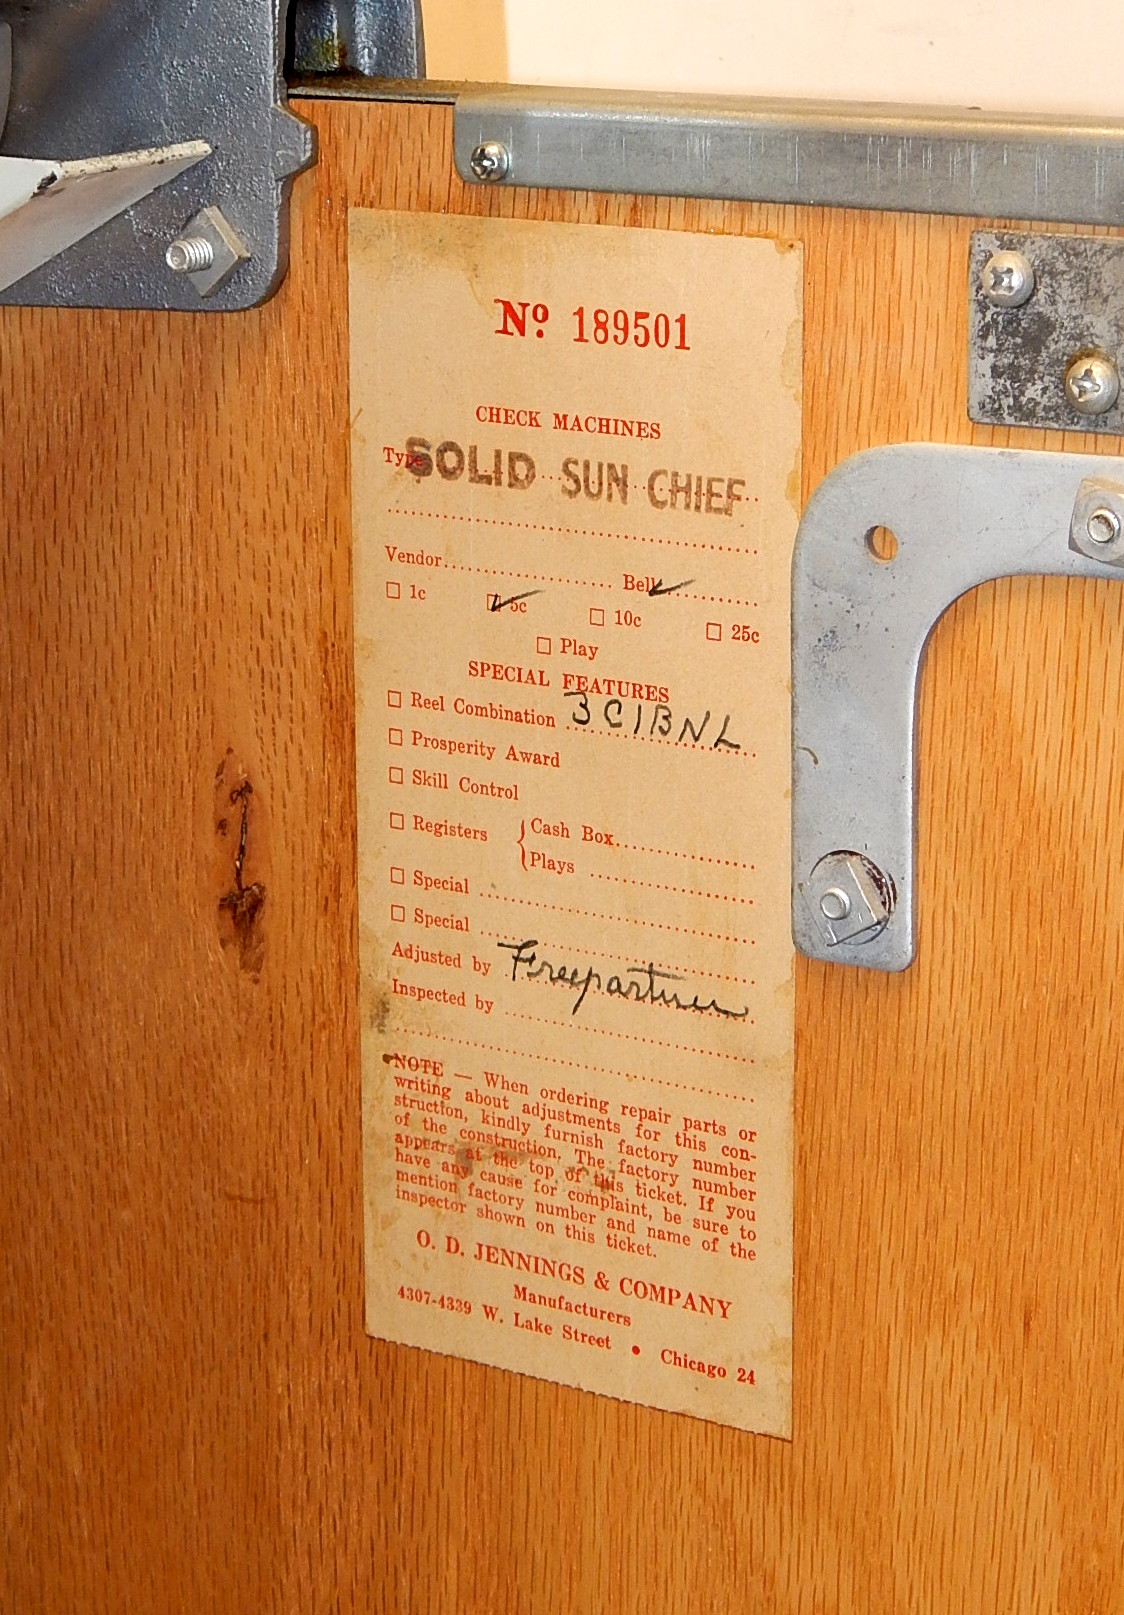 No. 189501
CHECK MACHINES
Type SOLID SUN CHIEF
Vendor Bell ✓
☐ 1c ☑ 5c ☐ 10c ☐ 25c
☐ Play
SPECIAL FEATURES
☐ Reel Combination 3C1BNL
☐ Prosperity Award
☐ Skill Control
☐ Registers { Cash Box
Plays
☐ Special
☐ Special
Adjusted by
Inspected by
NOTE — When ordering repair parts or
writing about adjustments for this con-
struction, kindly furnish factory number
of the construction. The factory number
appears at the top of this ticket. If you
have any cause for complaint, be sure to
mention factory number and name of the
inspector shown on this ticket.
O. D. JENNINGS & COMPANY
Manufacturers
4307-4339 W. Lake Street • Chicago 24